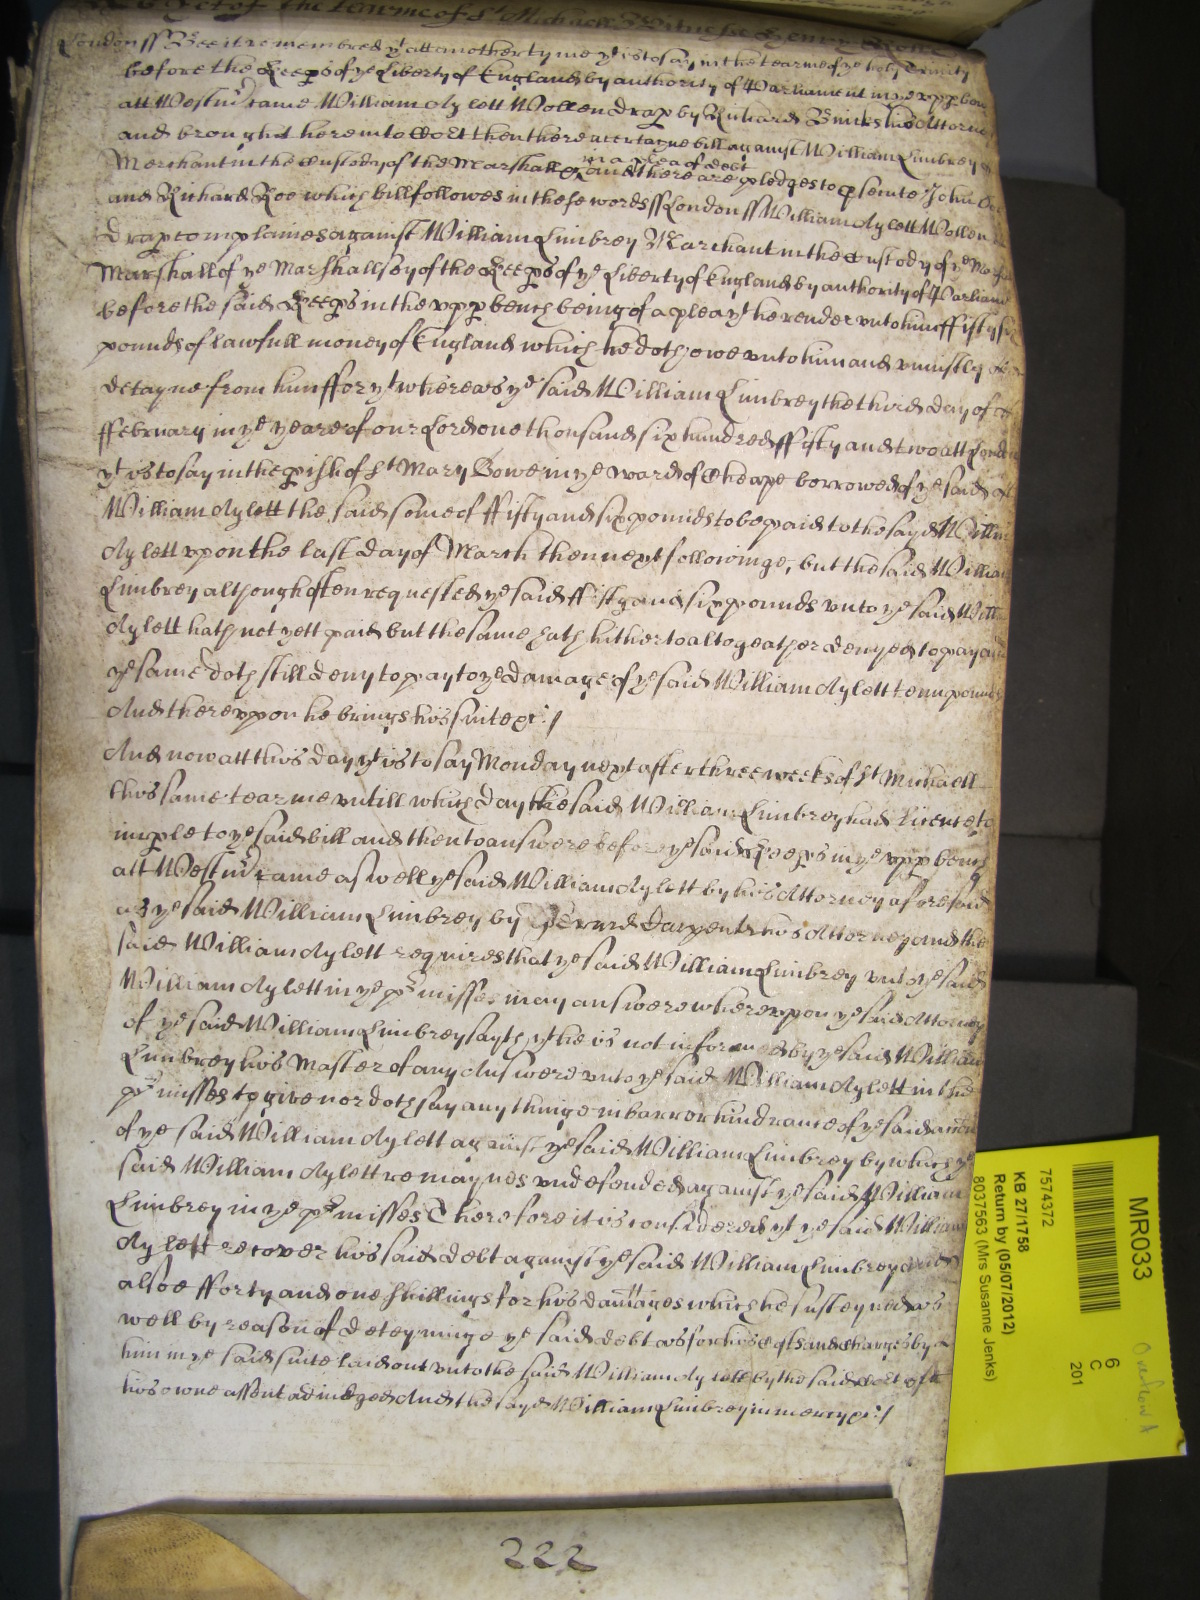 of the tearme of St Michaell Witnesse Henry Rolle
London ss Bee it remembred yt att another tyme yt is to say in the tearme of ye holy Trinity
before the Keeps of ye Liberty of England by authority of Parliament in ye upp bench
att Westmr came William Aylett Wollendrap by Richard his Attorney
and brought here into Court then there a certayne bill against William Limbrey
Merchant in the Custody of the Marshall &c in a plea of debt and there are pledges to psecute John Doe
and Richard Roe which bill followes in these words ss London ss William Aylett Wollen
drap complaines against William Limbrey Marchant in the Custody of ye
Marshall of ye Marshallsey of the Keeps of ye Liberty of England by authority of Parliamt
before the said Keeps in the upp bench being of a plea yt he render unto him ffifty six
pounds of lawfull money of England which he doth owe unto him and uniustly
detayne from him ffor yt whereas ye said William Limbrey the third day of
ffebruary in ye yeare of our Lord one thousand six hundred ffifty and two att London
yt is to say in the pish of St Mary Bowe in ye ward of Cheape borrowed of ye said
William Aylett the said some of ffifty and six pounds to be paid to the sayd William
Aylett upon the last day of March then next followinge, but the said William
Limbrey although often requested ye said ffifty and six pounds unto ye said Willm
Aylett hath not yett paid but the same hath hitherto altogeather denyed to pay and
ye same doth still deny to pay to ye damage of ye said William Aylett tenn pounds
And thereupon he brings his suite &c:/
And now att this day yt is to say Monday next after three weeks of St Michaell
this same tearme untill which day the said William Limbrey had licence to
imple to ye said bill and then to answere before ye said Keeps in ye upp bench
att Westmr came aswell ye said William Aylett by his Attorney aforesaid
as ye said William Limbrey by his Attorney and the
said William Aylett requires that ye said William Limbrey unto ye said
William Aylett in ye pmisses may answere whereupon ye said Attorney
of ye said William Limbrey sayth yt he is not informed by ye said William
Limbrey his Master of any Answere unto ye said William Aylett in the
pmisses to give nor doth say any thinge in barr or hindrance of ye said accon
of ye said William Aylett against ye said William Limbrey by which ye
said William Aylett remaynes undefended against ye said William
Limbrey in ye pmisses Therefore it is considered yt ye said William
Aylett recover his said debt against ye said William Limbrey and
alsoe fforty and one shillings for his damages which he susteyned as
well by reason of deteyninge ye said debt as for his Costs and charges by
him in ye said suite laid out unto the said William Aylett by the said Court
his owne assent adiudged And the sayd William Limbrey in mercy &c:/
222
MR033
6
C
201
7574372
KB 27/1758
Return by (05/07/2012)
8037563 (Mrs Susanne Jenks)
Overflow A